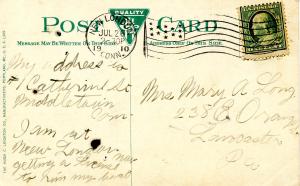 POST CARD
QUALITY
MESSAGE MAY BE WRITTEN ON THIS SIDE
ADDRESS ONLY ON THIS SIDE
NEW LONDON
JUL 26
1910
CONN.
My address to
7 Catherine St
Middletown
Conn
I am at
New London now
getting a
to my boat
Mrs. Mary A Long
238 E Orange
Lancaster
Pa
THE HUGH C. LEIGHTON CO., MANUFACTURERS, PORTLAND, ME., U.S.A.